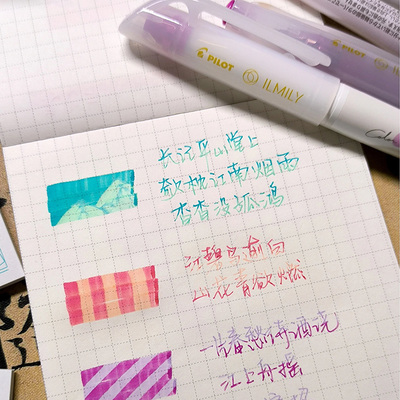 PILOT
ILMILY
PILOT
ILMILY
长记平山堂上
欹枕江南烟雨
杳杳没孤鸿
江碧鸟逾白
山花青欲燃
一片春愁待酒浇
江上舟摇